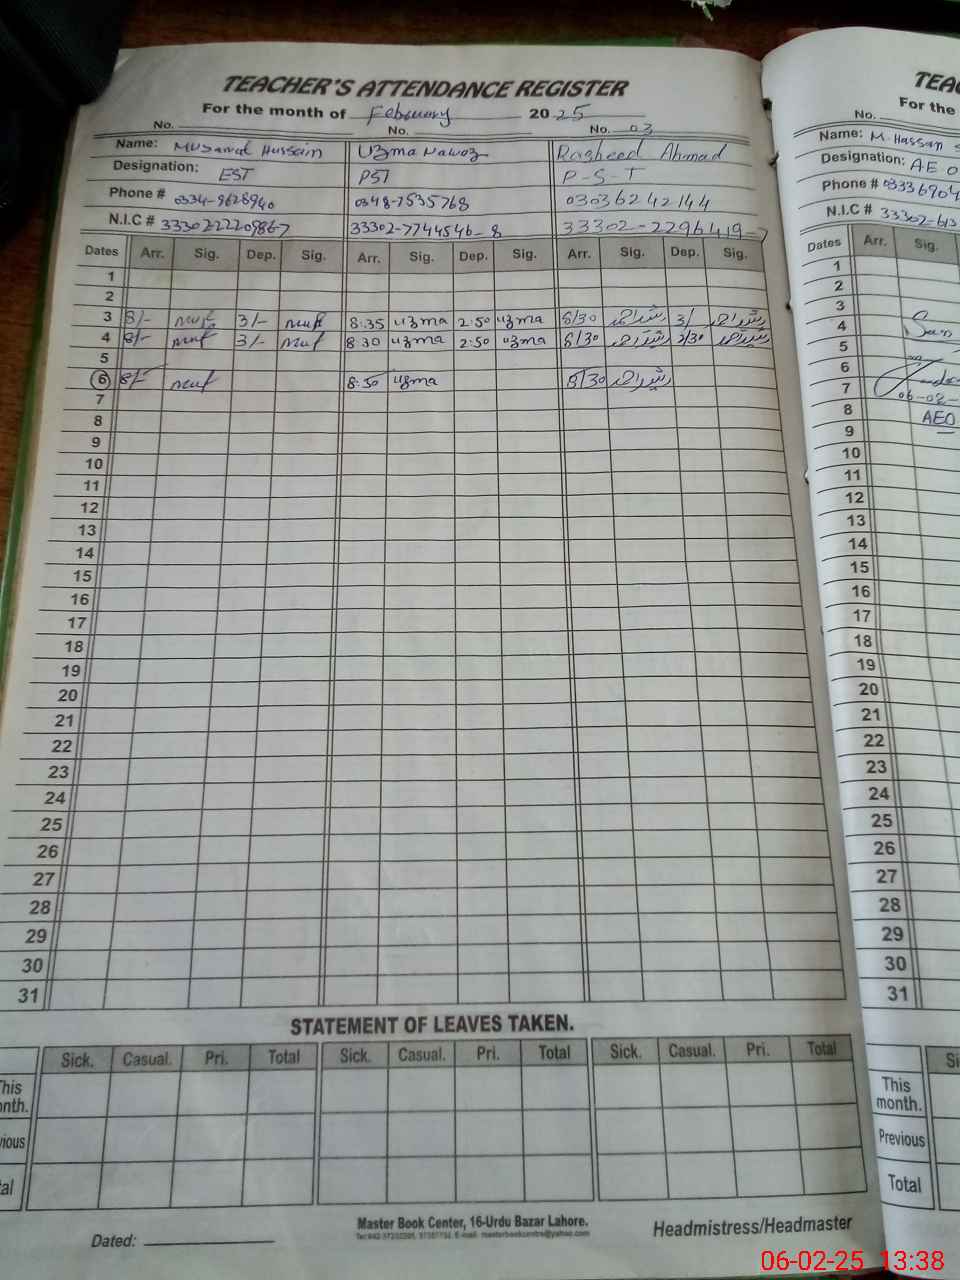 TEACHER'S ATTENDANCE REGISTER
For the month of February 2025
No. No. No. 03
Name: Hussain Uzma Nawaz Rasheed Ahmad
Designation: EST PST P-S-T
Phone # 0334-9628940 0348-7535768 03036242144
N.I.C # 33302-7744546-8 33302-2296419-7
Dates Arr. Sig. Dep. Sig. Arr. Sig. Dep. Sig. Arr. Sig. Dep. Sig.
1
2
3 8/- 3/- 8:35 uzma 2:50 uzma 8/30 رشید احمد 3/ رشید احمد
4 8/- 3/- 8:30 uzma 2:50 uzma 8/30 رشید احمد رشید احمد
5
6 8/- 8:50 uzma 8/30 رشید احمد
7
8
9
10
11
12
13
14
15
16
17
18
19
20
21
22
23
24
25
26
27
28
29
30
31
STATEMENT OF LEAVES TAKEN.
Sick. Casual. Pri. Total Sick. Casual. Pri. Total Sick. Casual. Pri. Total
This
onth.
vious
al
Master Book Center, 16-Urdu Bazar Lahore.
Dated: Headmistress/Headmaster
TEA
For the
No.
Name: M. Hassan
Designation: AEO
Phone # 0333690
N.I.C # 33302-613
Dates Arr. Sig.
1
2
3
4
5
6
7 06-02-
8 AEO
9
10
11
12
13
14
15
16
17
18
19
20
21
22
23
24
25
26
27
28
29
30
31
Si
This
month.
Previous
Total
06-02-25 13:38